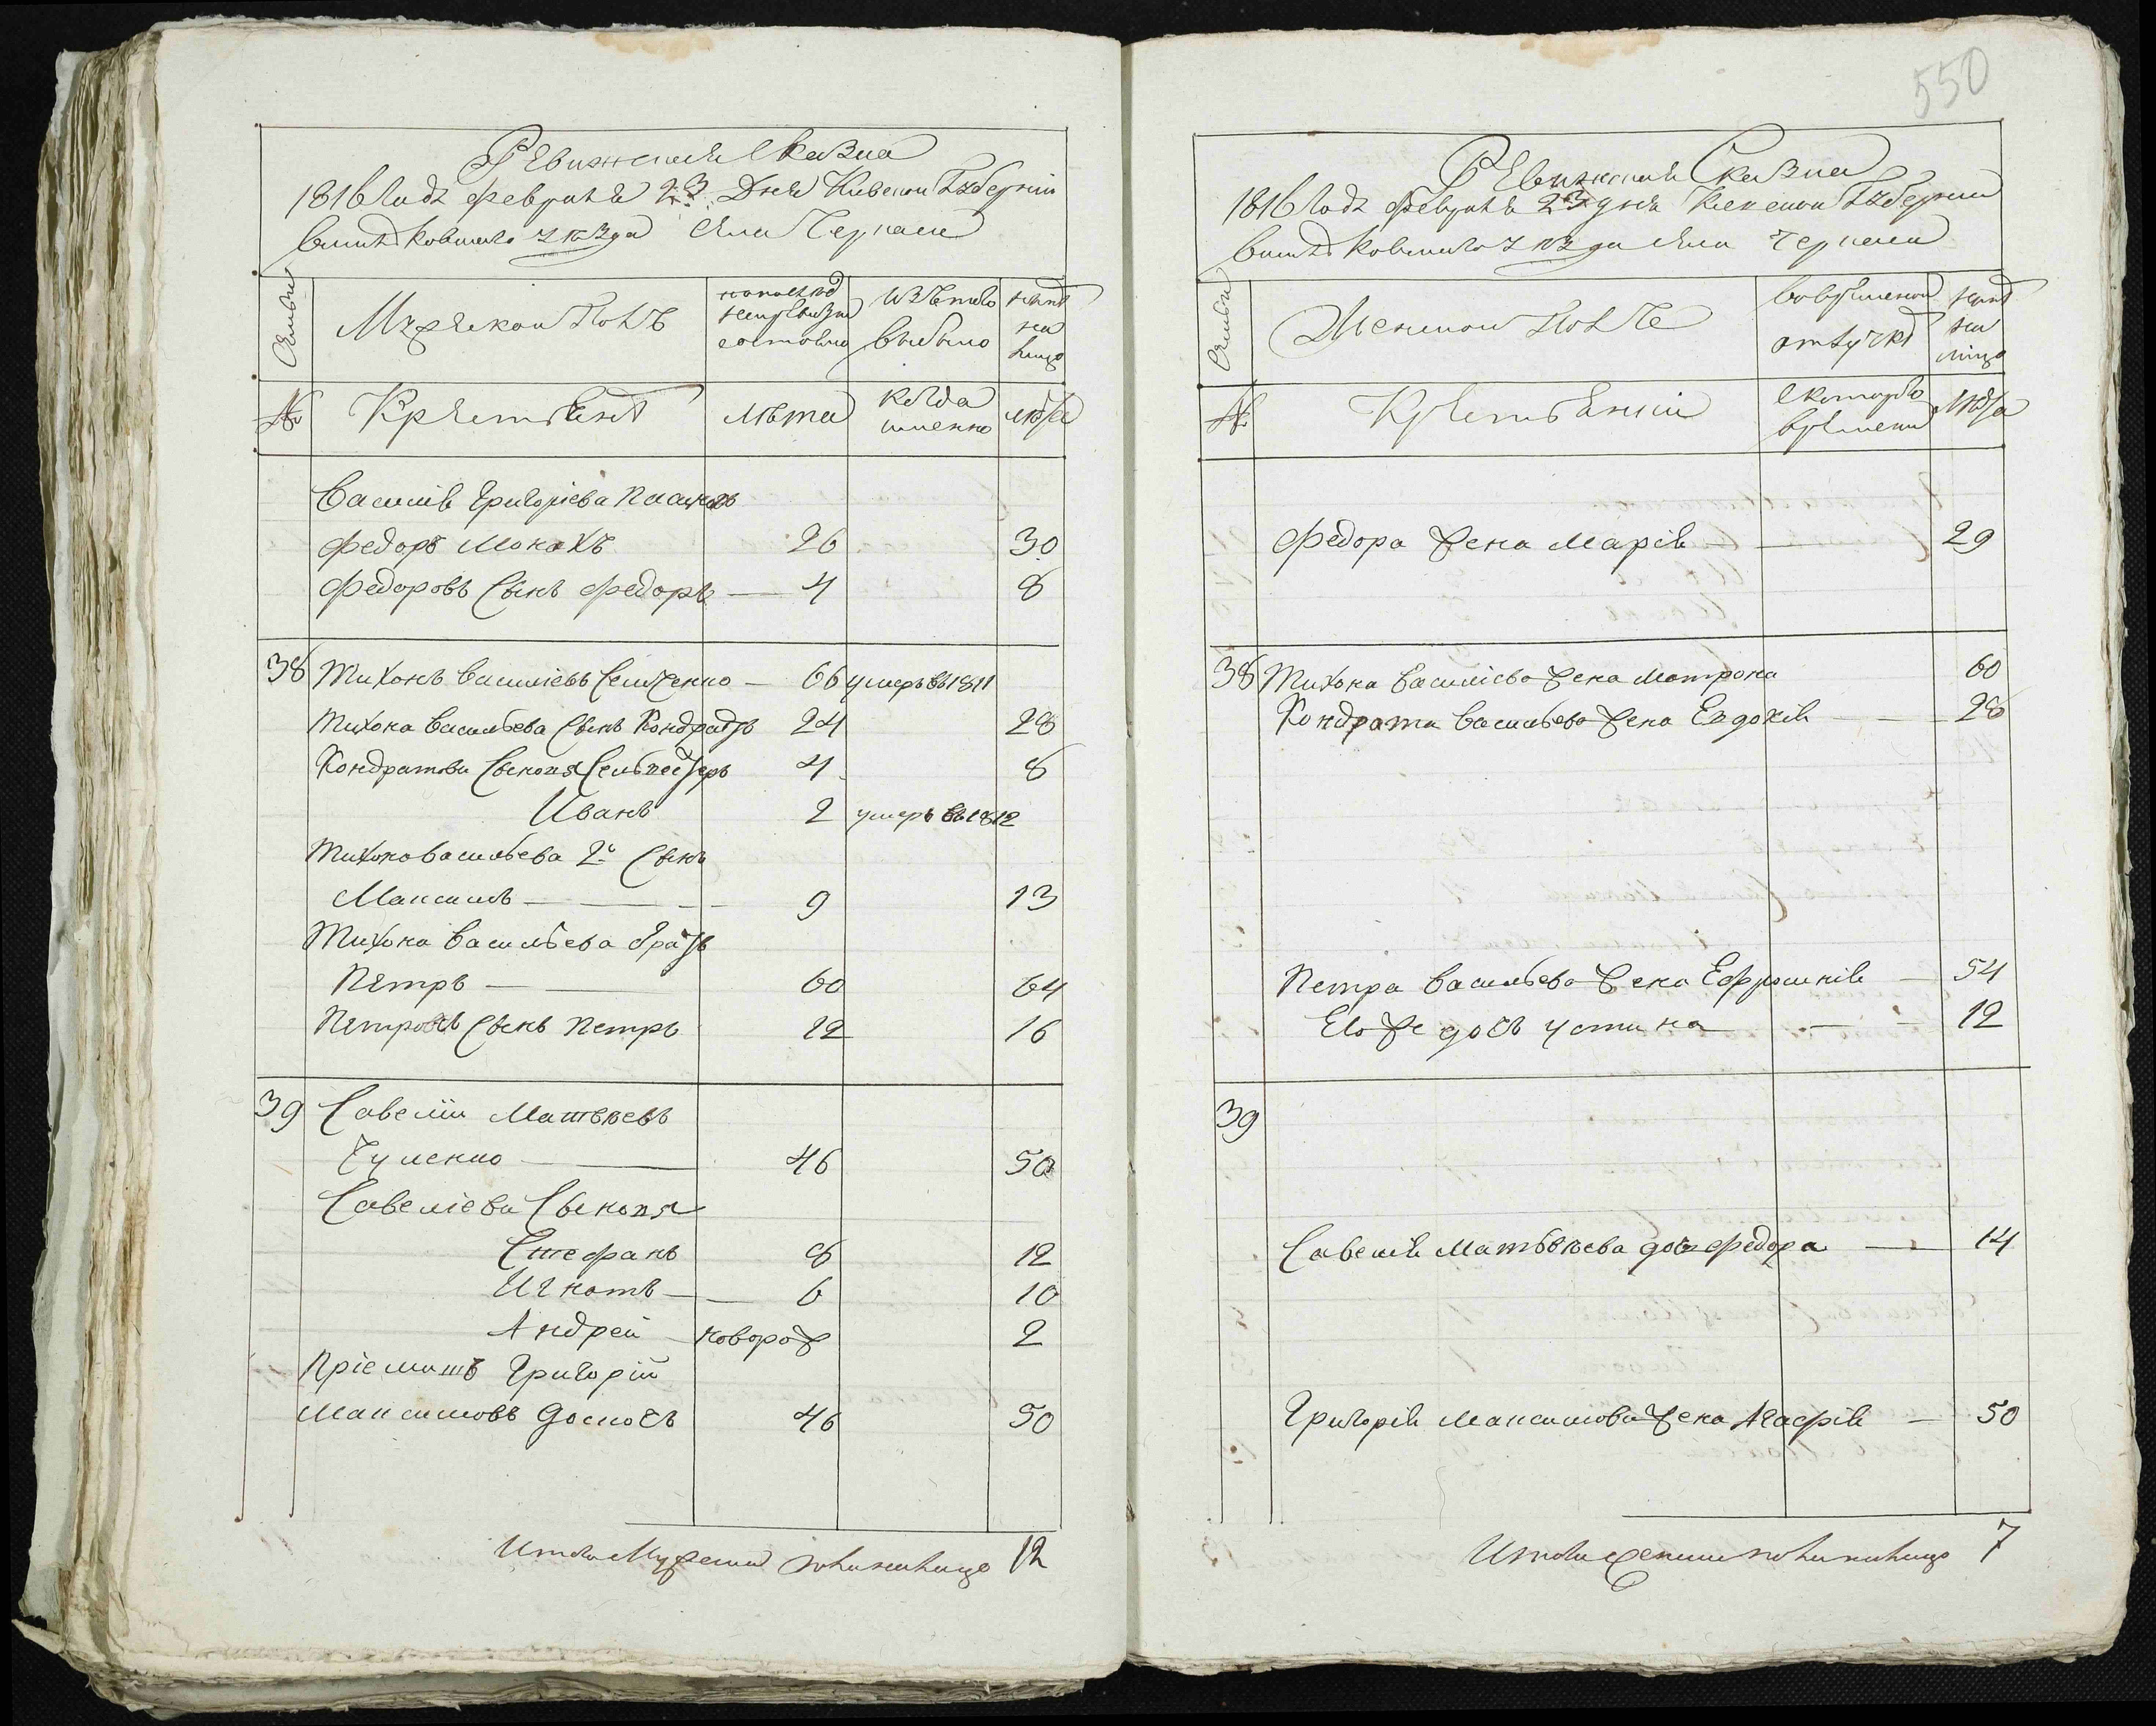 Ревижская Сказка
1816 Года Февраля 23. Дня Киевской Губернии
Васильковскаго уезда Села Черкас
Семьи
Мужеской Полъ
по последней ревизии состояло
Изъ того выбыло
ныне на лицо
№
Крестьяне
Лета
Когда именно
Лета
Василія Григорієва Пасынокъ
Федоръ Монахъ 26 30
Федоровъ Сынъ Федоръ — 4 8
38 Тихонъ Василіевъ — 66 умеръ въ 1811
Тихона Васильева Сынъ Кондратъ 24 28
Кондратови Сынопя Сельвестеръ 4 8
Иванъ 2 умеръ въ 1812
Тихона Васильева 2й Сынъ
Максимъ — 9 13
Тихона Васильева братъ
Петръ — 60 64
Петровъ Сынъ Петръ 12 16
39 Савелій Матвѣевъ
46 50
Савелієви Сынопя
Стефанъ 8 12
Игнатъ — 6 10
Андрей — новорож 2
Пріематъ Григорій
Максимовъ 46 50
Итого Мужеска пола на лицо 12
550
Ревижская Сказка
1816 Года Февраля 23 дня Киевской Губернии
Васильковскаго уезда Села Черкас
Семьи
Женской Полъ
Во временной отлучке
ныне на лицо
№
Крестьянки
С котораго времени
Лета
Федора жена Марія — 29
38 Тихона Василієва жена Матрона 60
Кондрата Васильева жена Евдокія — 28
Петра Васильева жена Ефросинія — 54
Его же дочь Устина — 12
39
Савелія Матвѣева дочь Федора — 14
Григорія Максимова жена Агафія — 50
Итого женска пола на лицо 7